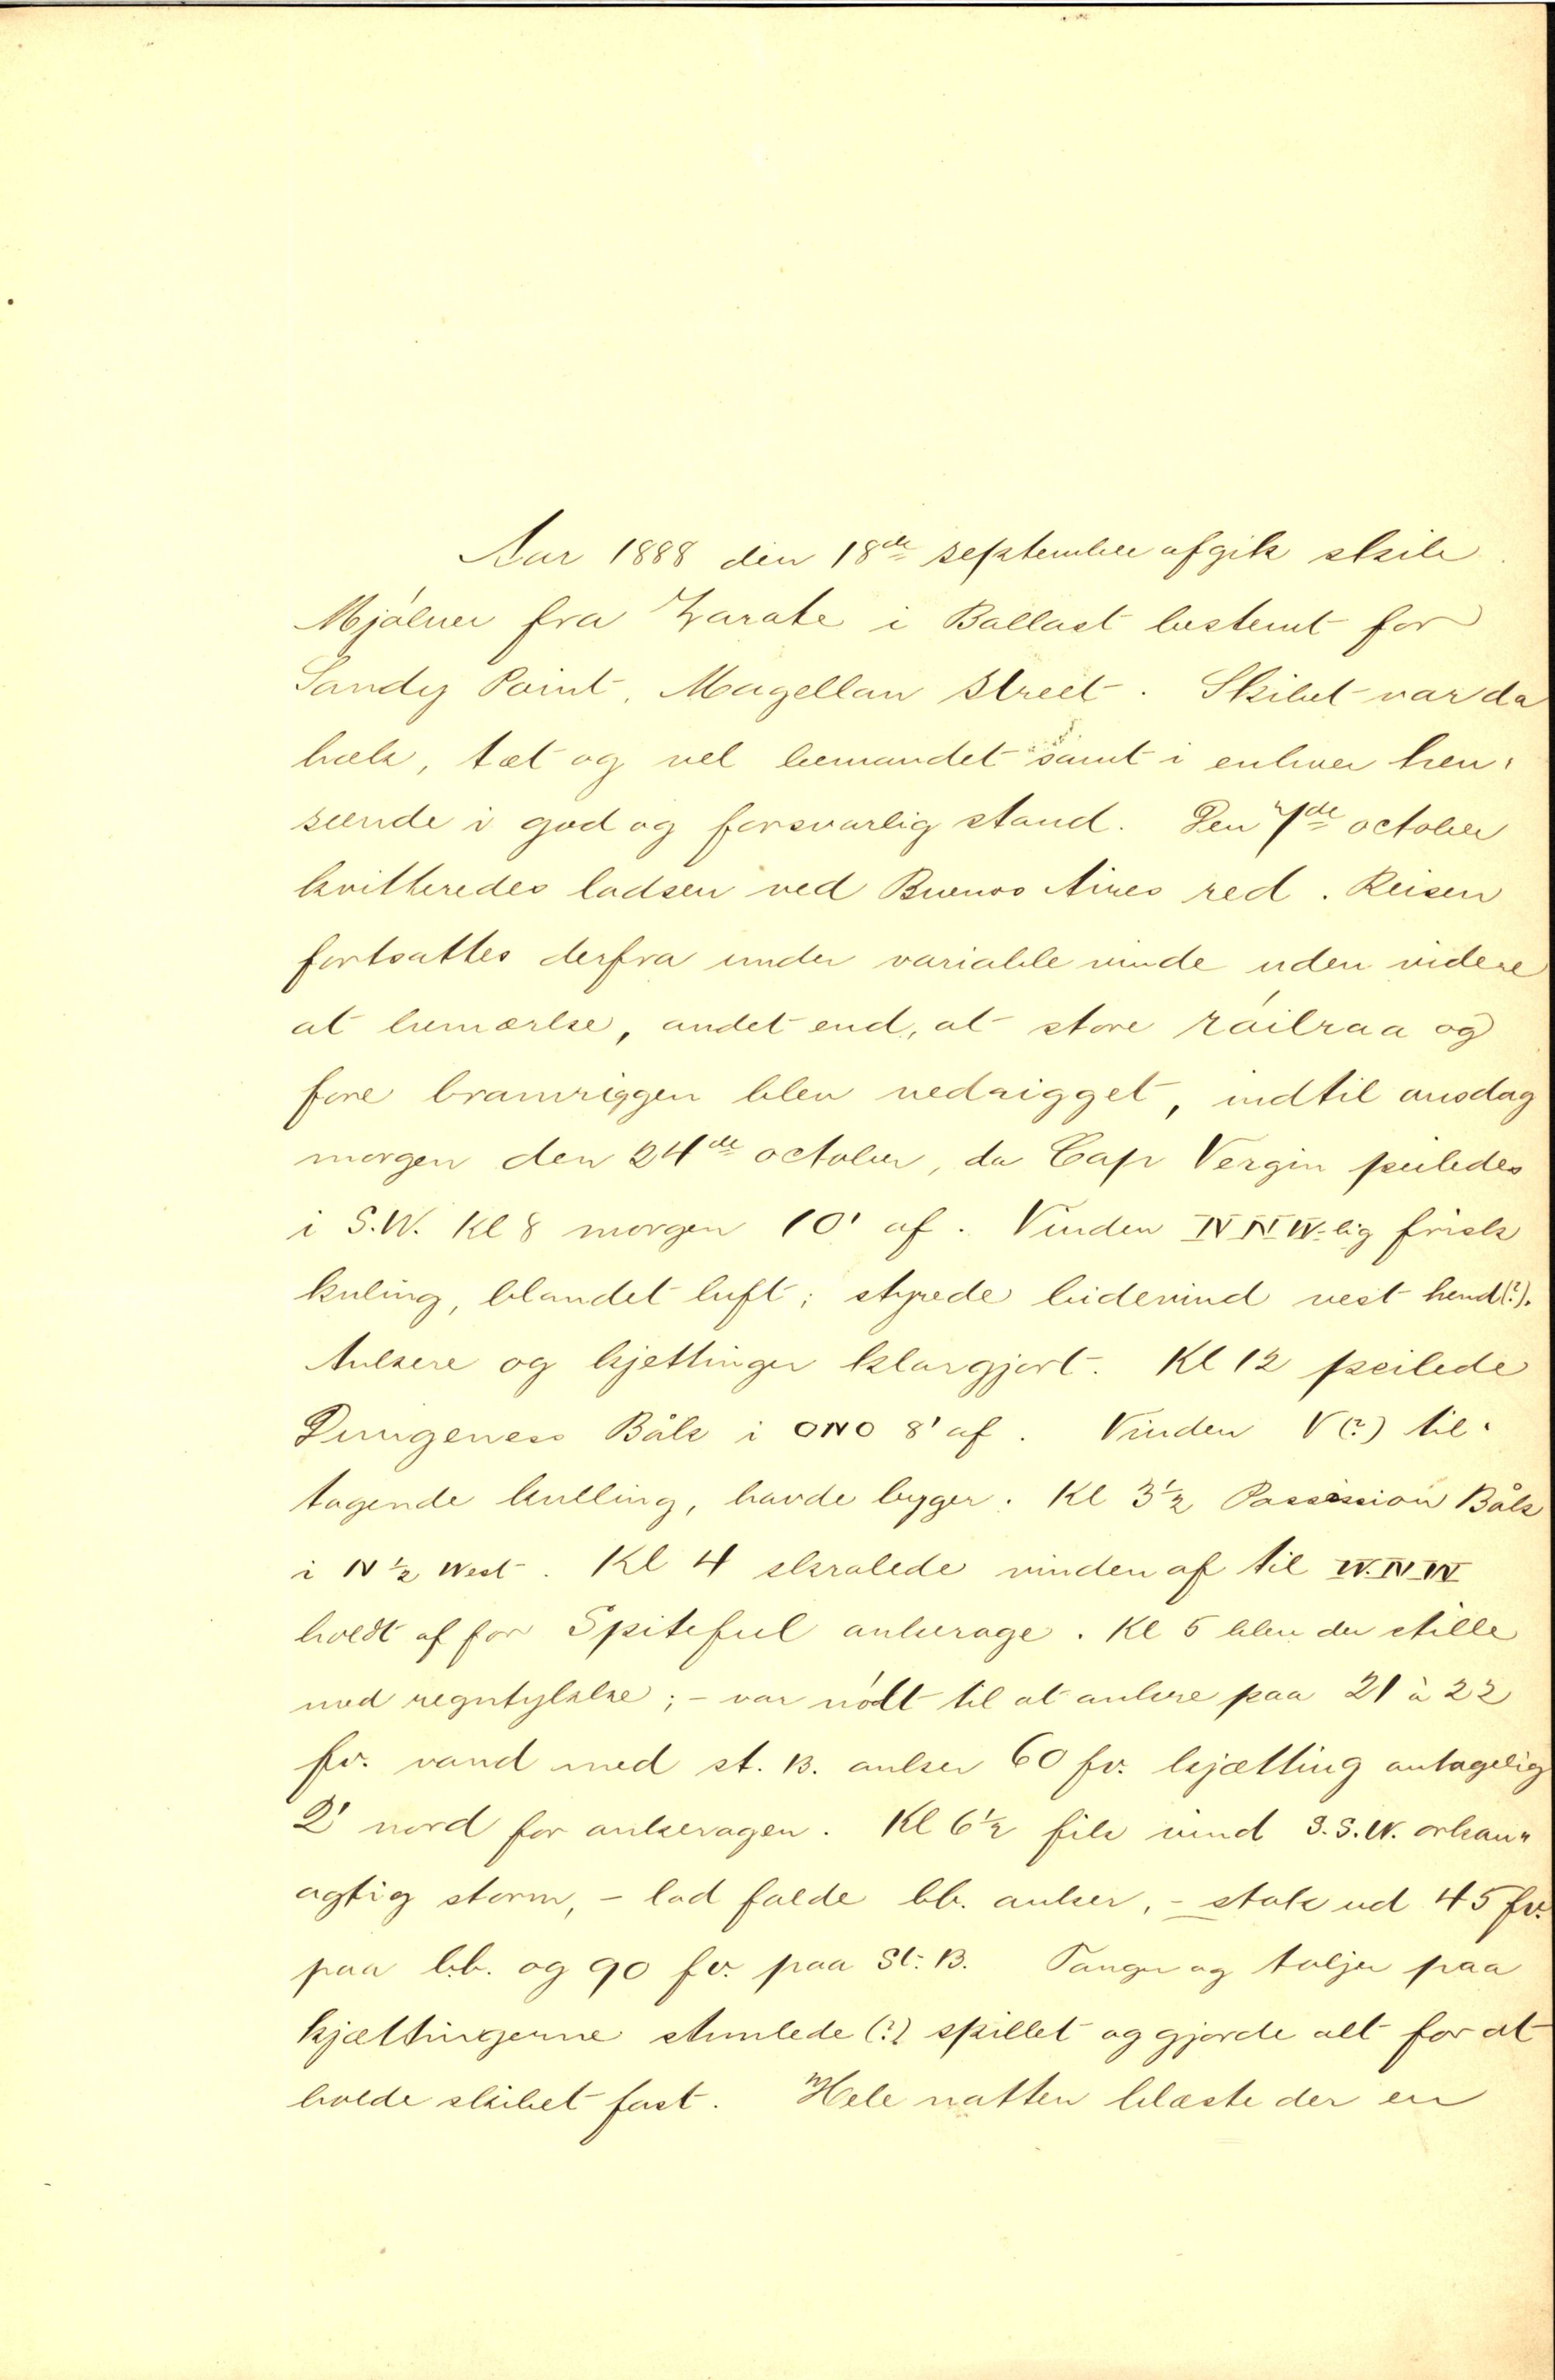 Aar 1888 den 18de september afgik skib
Mjølner fra Zarate i Ballast bestemt for
Sandy Point, Magellan Street. Skibet var da
hælt, tæt og vel bemandet samt i enhver hen-
seende i god og forsvarlig stand. Den 7de october
kvitteredes lodsen ved Buenos Aires red. Reisen
fortsattes derfra under variable vinde uden videre
at bemærke, andet end, at store röilraa og
fore bramriggen blev nedrigget, indtil onsdag
morgen den 24de october, da Cap Vergin peiledes
i S.W. Kl 8 morgen 10' af. Vinden NNW-lig frisk
kuling, blandet luft; styrede bidevind vest hend(?).
Ankere og kjettinger klargjort. Kl 12 peilede
Dungeness Båk i ONO 8' af. Vinden V(?) til-
tagende kulling, haarde byger. Kl 3½ Possession Båk
i N ½ West. Kl 4 skralede vinden af til W.NW
holdt af for Spiteful ankerage. Kl 5 blev der stille
med regntykke; - var nödt til at ankre paa 21 à 22
fv. vand med st. B. anker 60 fv. kjætting antagelig
2' nord for ankeragen. Kl 6½ fik vind S.S.W. orkan-
agtig storm, - lod falde bb. anker, - stak ud 45 fv.
paa b.b. og 90 fv. paa St. B. Tanger og taljer paa
kjættingerne stuulede (?) spillet og gjorde alt for at
holde skibet fast. Hele natten blæste der en